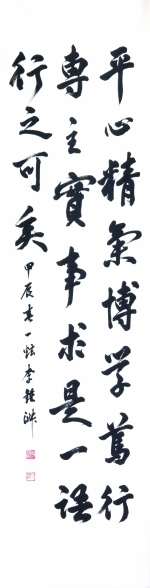 平心精氣博學篤行
專主實事求是一語
行之可矣
甲辰春一炫李鍾淋